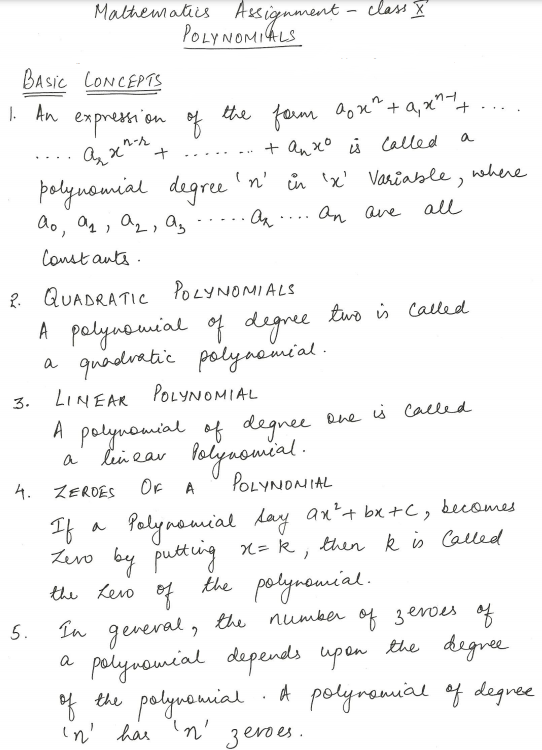 Mathematics Assignment - class X
POLYNOMIALS
BASIC CONCEPTS
1. An expression of the form a₀xⁿ + a₁xⁿ⁻¹ + ....
.... aᵣxⁿ⁻ʳ + ......... + aₙx⁰ is called a
polynomial degree 'n' in 'x' variable, where
a₀, a₁, a₂, a₃ ...... aᵣ .... aₙ are all
constants.
2. QUADRATIC POLYNOMIALS
A polynomial of degree two is called
a quadratic polynomial.
3. LINEAR POLYNOMIAL
A polynomial of degree one is called
a linear Polynomial.
4. ZEROES OF A POLYNOMIAL
If a Polynomial say ax² + bx + c, becomes
zero by putting x = k, then k is called
the zero of the polynomial.
5. In general, the number of zeroes of
a polynomial depends upon the degree
of the polynomial. A polynomial of degree
'n' has 'n' zeroes.